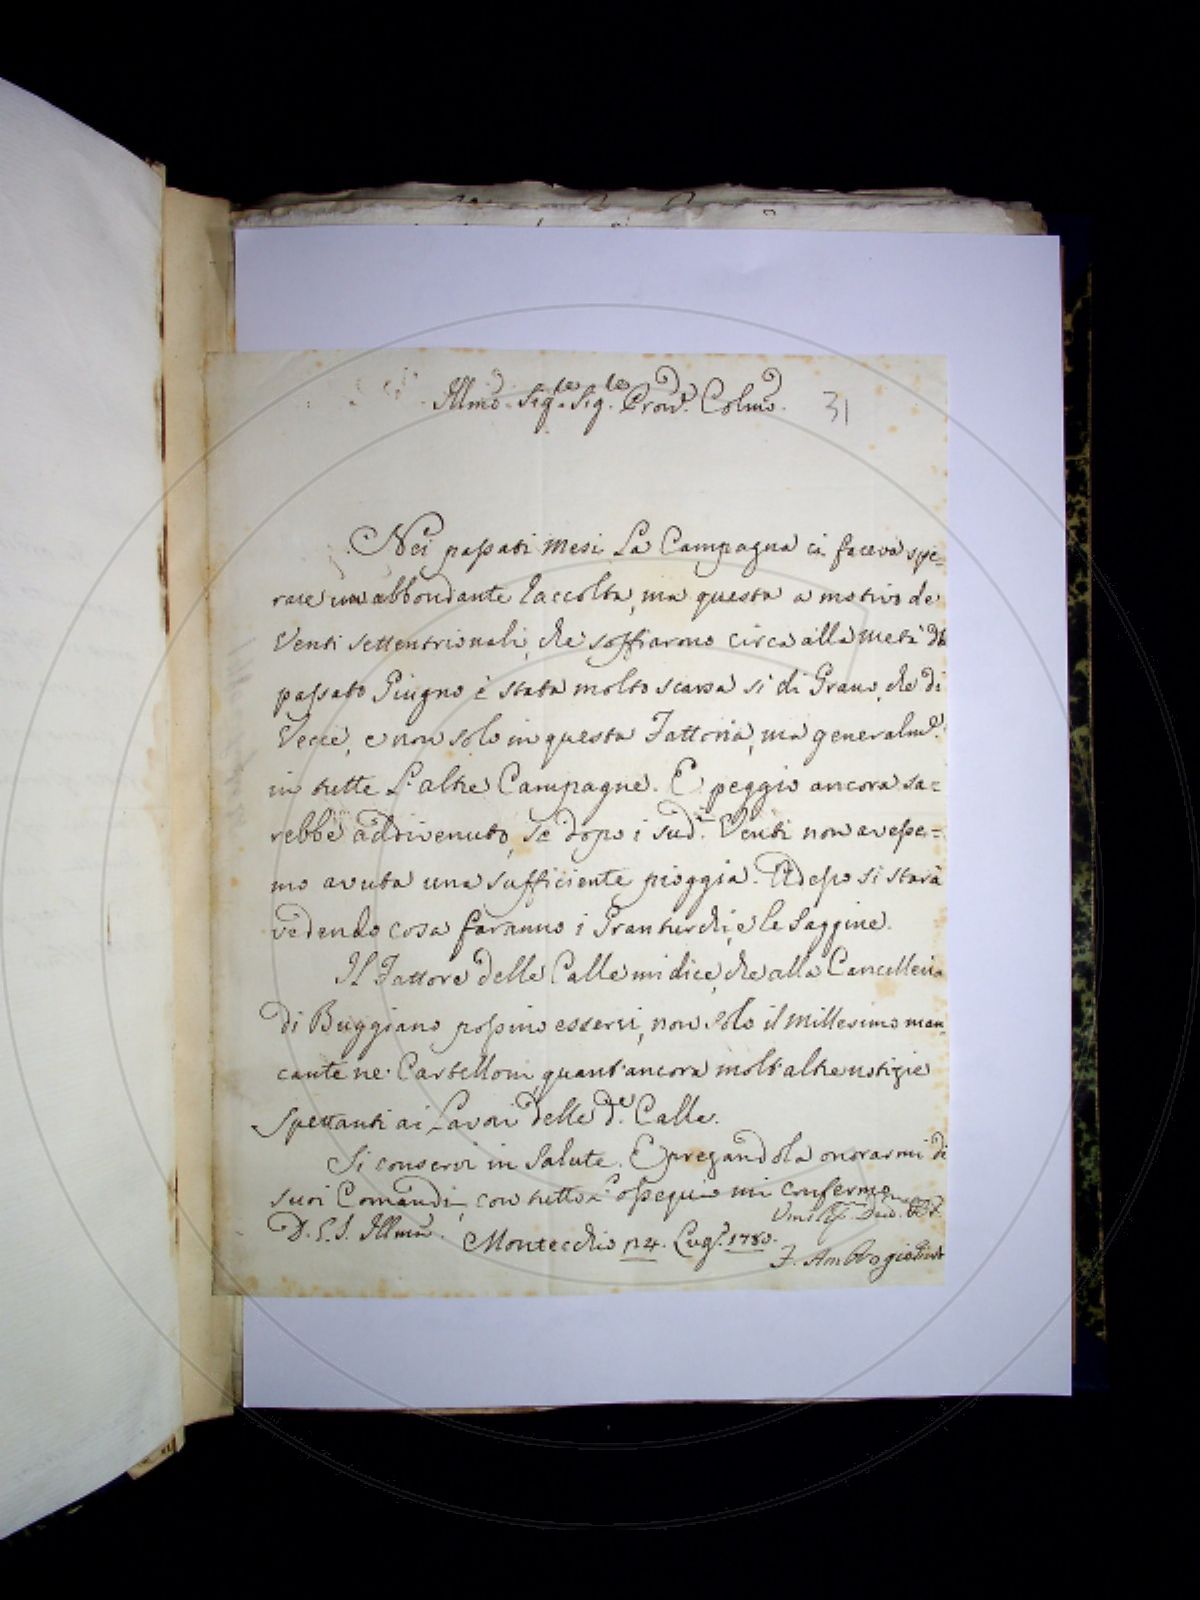 Illmo. Sig.re Sig.re Pron. Colmo. 31
Nei passati Mesi La Campagna ci faceva spe=
rare un abbondante Raccolta, ma questa a motivo de
Venti settentrionali, che soffiarono circa alla metà del
passato Giugno è stata molto scarsa sì di Grano, che di
Vecce, e non solo in questa Fattoria, ma generalmte.
in tutte L'altre Campagne. E peggio ancora sa=
rebbe addivenuto, se dopo i sudi. Venti non avesse=
mo avuta una sufficiente pioggia. Adesso si starà
vedendo cosa faranno i Granturchi, e le Saggine.
Il Fattore delle Calle mi dice, che alla Cancelleria
di Buggiano possino esservi, non solo il Millesimo man=
cante ne' Cartelloni, quant'ancora molt'altre notizie
spettanti ai Lavori delle de. Calle.
Si conservi in Salute. E pregandola onorarmi di
suoi Comandi, con tutto l'ossequio mi confermo
D. S. S. Illma. Montecchio p.4. Lugo. 1780.
F. Ambrogio